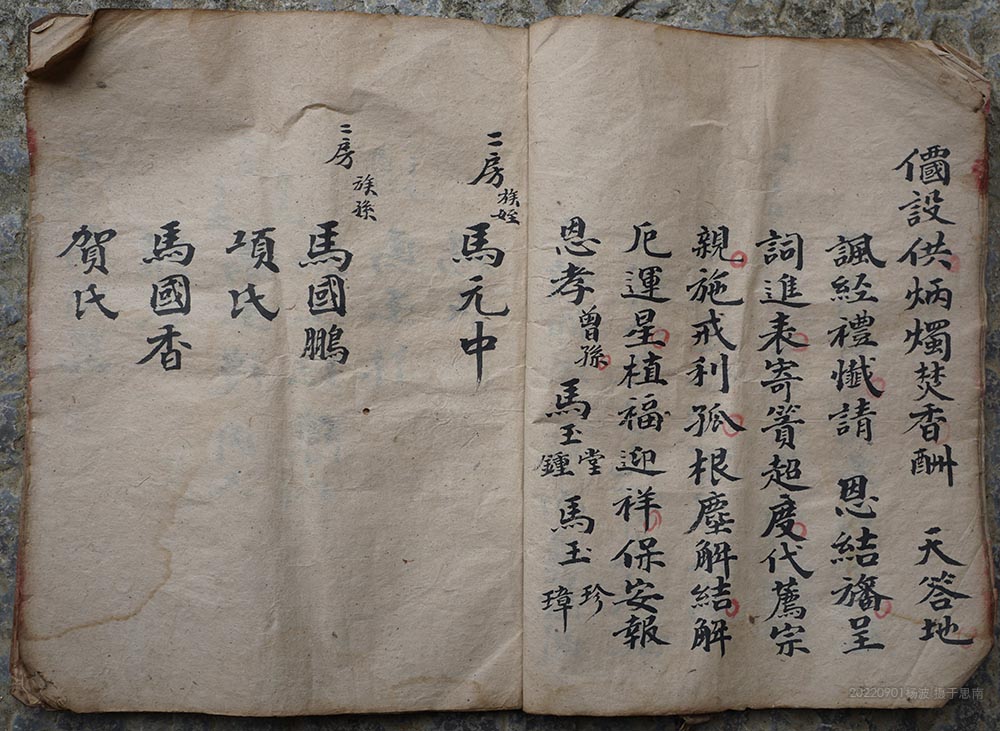 儩設供炳燭焚香酬　天答地
諷經禮懺請　恩結旛呈
詞進表寄簀超度代薦宗
親施戒利孤根塵解結解
厄運星植福迎祥保安報
恩孝曾孫馬玉堂鍾馬玉珍璋
二房族姪馬元中
二房族孫馬國鵬
項氏
馬國香
賀氏
20220901杨波 摄于思南